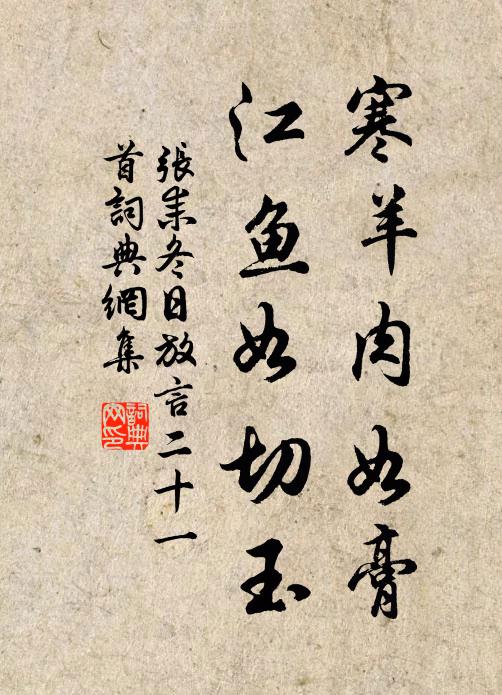 寒羊肉如膏
江鱼如切玉
張耒冬日放言二十一
首詞典網集
詞典
网印